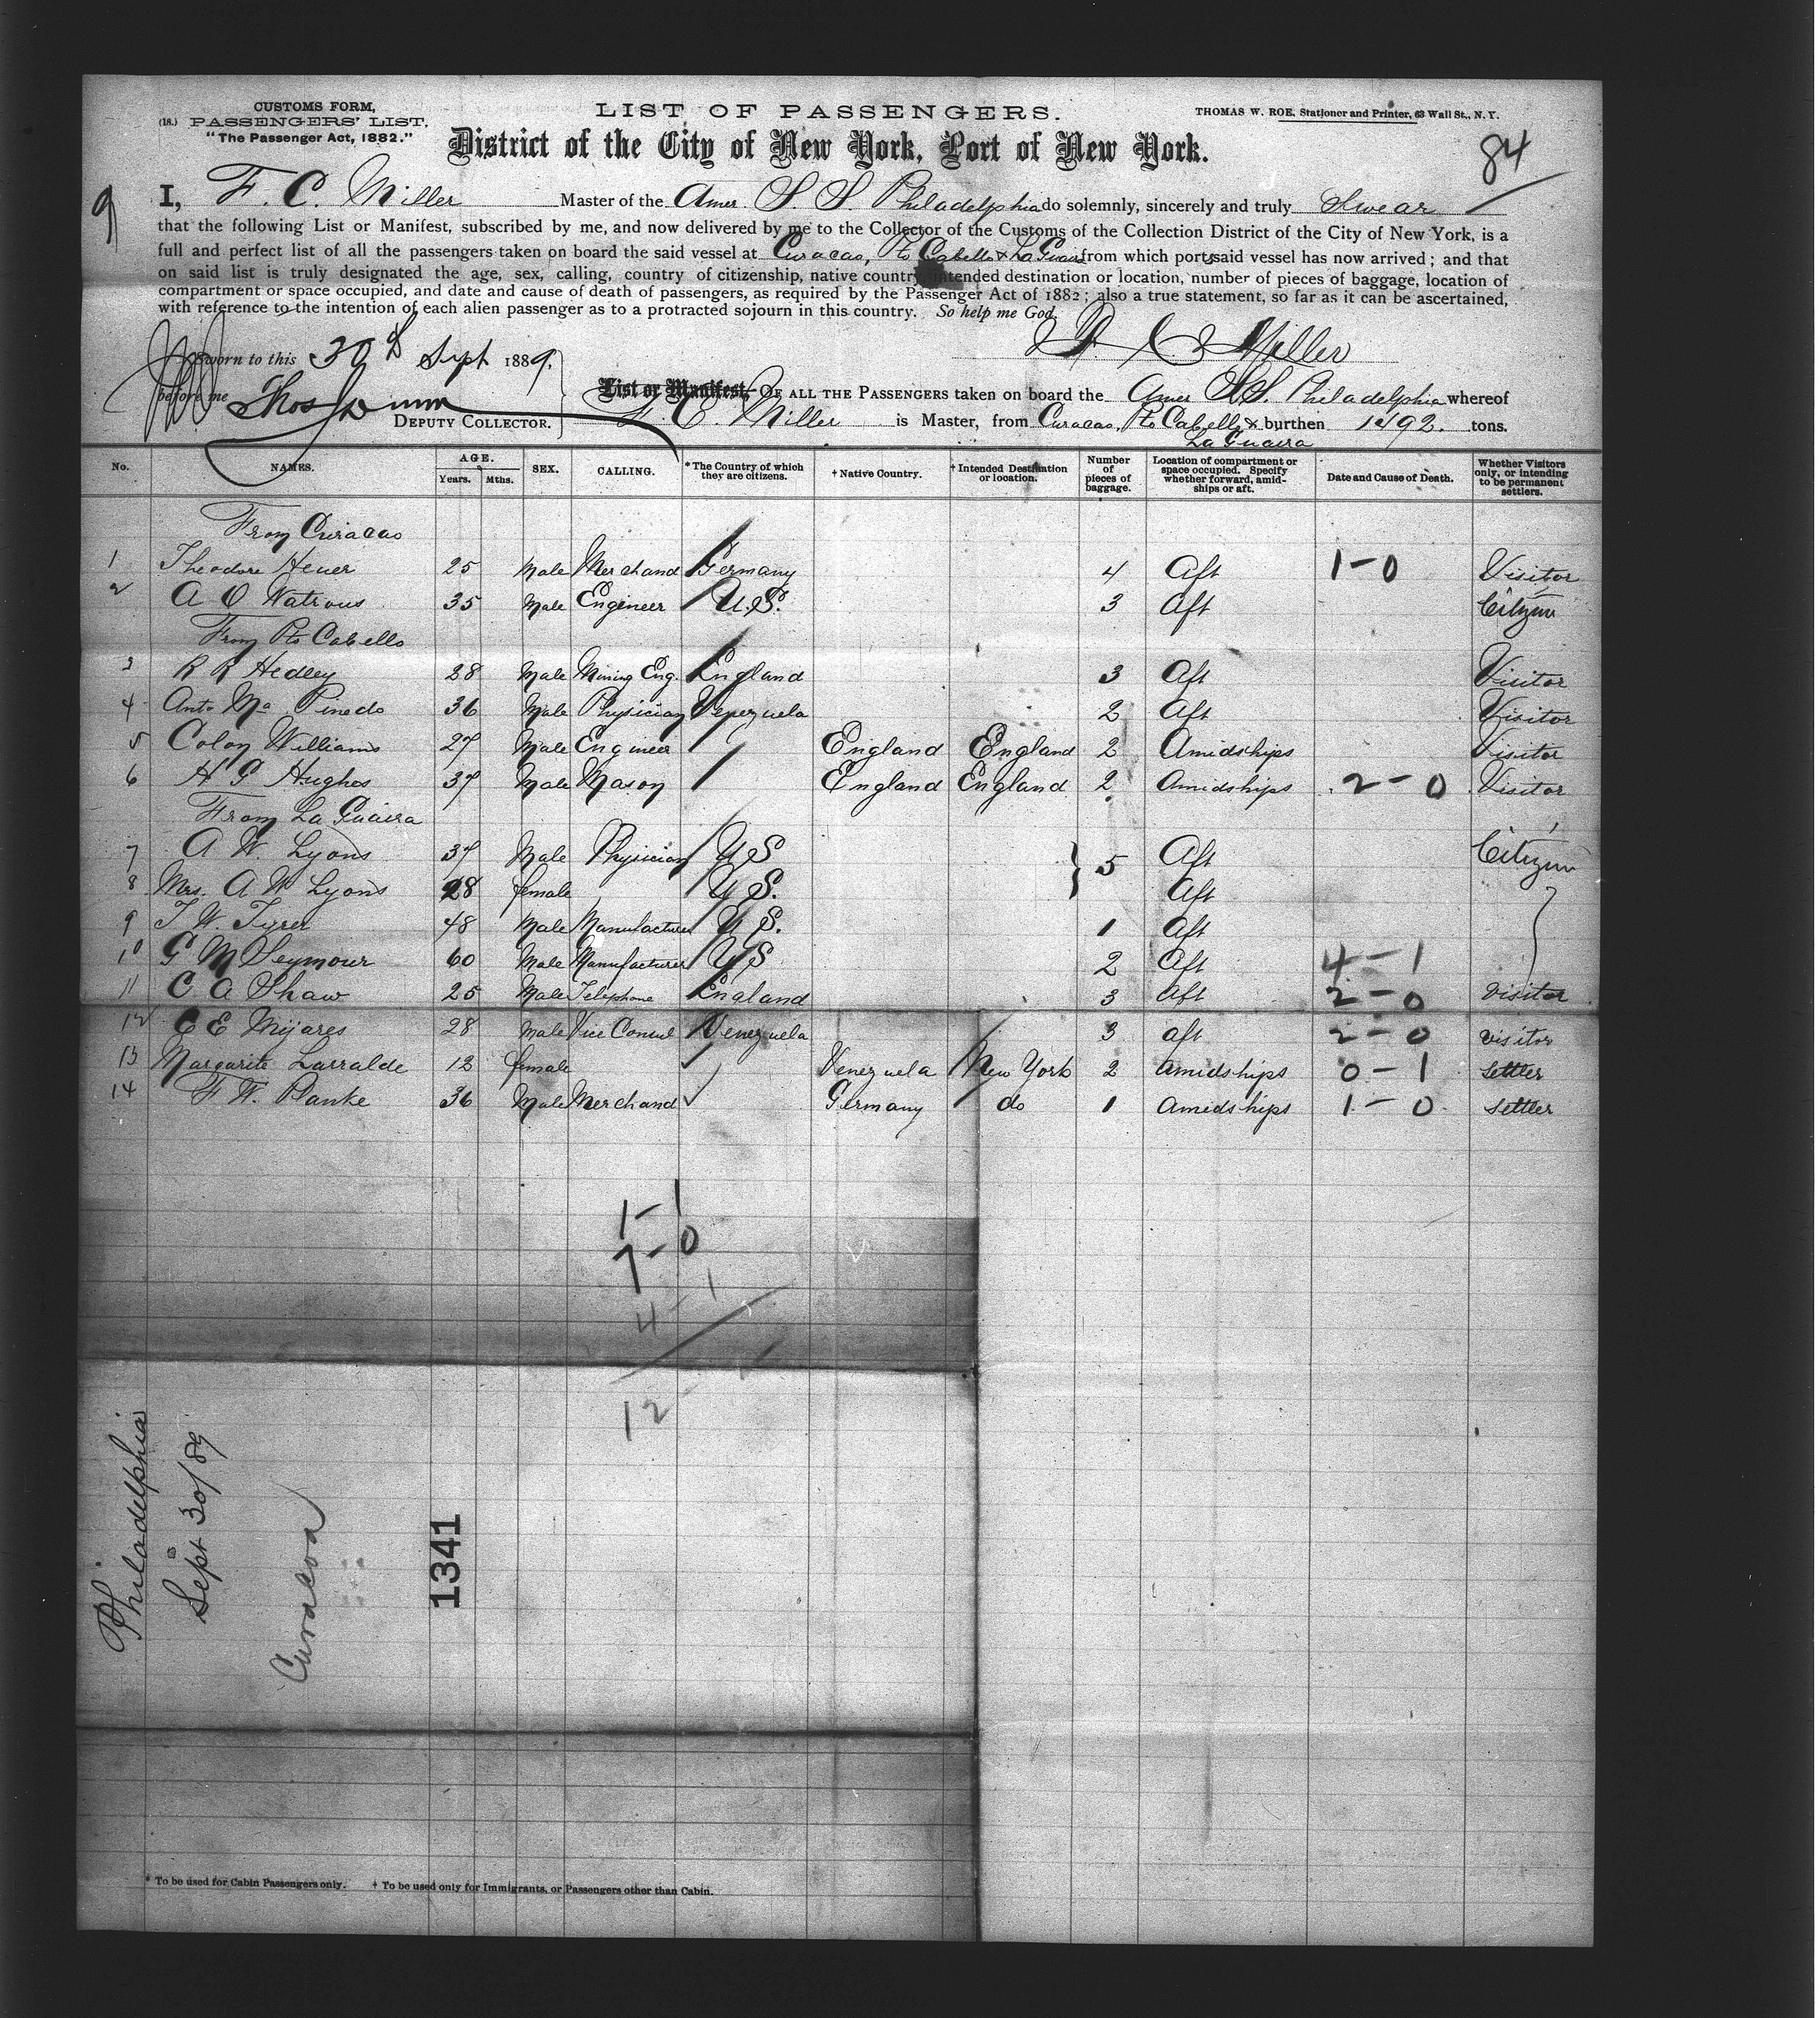 CUSTOMS FORM,
(18.) PASSENGERS' LIST,
"The Passenger Act, 1882."
LIST OF PASSENGERS.
THOMAS W. ROE, Stationer and Printer, 63 Wall St., N. Y.
District of the City of New York, Port of New York.
84
9
I, F. C. Miller Master of the Amer. S. S. Philadelphia do solemnly, sincerely and truly Swear
that the following List or Manifest, subscribed by me, and now delivered by me to the Collector of the Customs of the Collection District of the City of New York, is a
full and perfect list of all the passengers taken on board the said vessel at Curacao, Pto Cabello & La Guaira from which ports said vessel has now arrived; and that
on said list is truly designated the age, sex, calling, country of citizenship, native country, intended destination or location, number of pieces of baggage, location of
compartment or space occupied, and date and cause of death of passengers, as required by the Passenger Act of 1882; also a true statement, so far as it can be ascertained,
with reference to the intention of each alien passenger as to a protracted sojourn in this country. So help me God.
F C Miller
Sworn to this 30th Sept 1889.
before me Thos Dunn
DEPUTY COLLECTOR.
List or Manifest, OF ALL THE PASSENGERS taken on board the Amer S.S. Philadelphia whereof
F. C. Miller is Master, from Curacao, Pto Cabello & burthen 1492. tons.
La Guaira
No. NAMES. AGE. Years. Mths. SEX. CALLING. * The Country of which they are citizens. † Native Country. † Intended Destination or location. Number of pieces of baggage. Location of compartment or space occupied. Specify whether forward, amidships or aft. Date and Cause of Death. Whether Visitors only, or intending to be permanent settlers.
From Curacao
1 Theodore Heuer 25 Male Merchand Germany 4 Aft 1-0 Visitor
2 A O Watrous 35 Male Engineer U.S. 3 Aft Citizen
From Pto Cabello
3 R R Hedley 28 Male Mining Eng. England 3 Aft Visitor
4 Anto Ma Pinedo 36 Male Physician Venezuela 2 Aft Visitor
5 Colon Williams 27 Male Engineer England England 2 Amidships Visitor
6 H G Hughes 37 Male Mason England England 2 Amidships 2-0 Visitor
From La Guaira
7 A W. Lyons 37 Male Physician U S } 5 Aft Citizen
8 Mrs. A W Lyons 28 female U S. Aft
9 T. W. Tyrer 48 Male Manufacturer U S. 1 Aft
10 G M Seymour 60 Male Manufacturer U S 2 Aft 4-1
11 C A Shaw 25 Male Telephone England 3 Aft 2-0 Visitor
12 C E Mijares 28 Male Vice Consul Venezuela 3 aft 2-0 visitor
13 Margarita Larralde 12 female Venezuela New York 2 Amidships 0-1 settler
14 F. W. Planke 36 Male Merchand Germany do 1 Amidships 1-0 settler
1-1
7-0
4-1
12
Philadelphia
Sept 30/89
Curacoa
1341
* To be used for Cabin Passengers only. † To be used only for Immigrants, or Passengers other than Cabin.